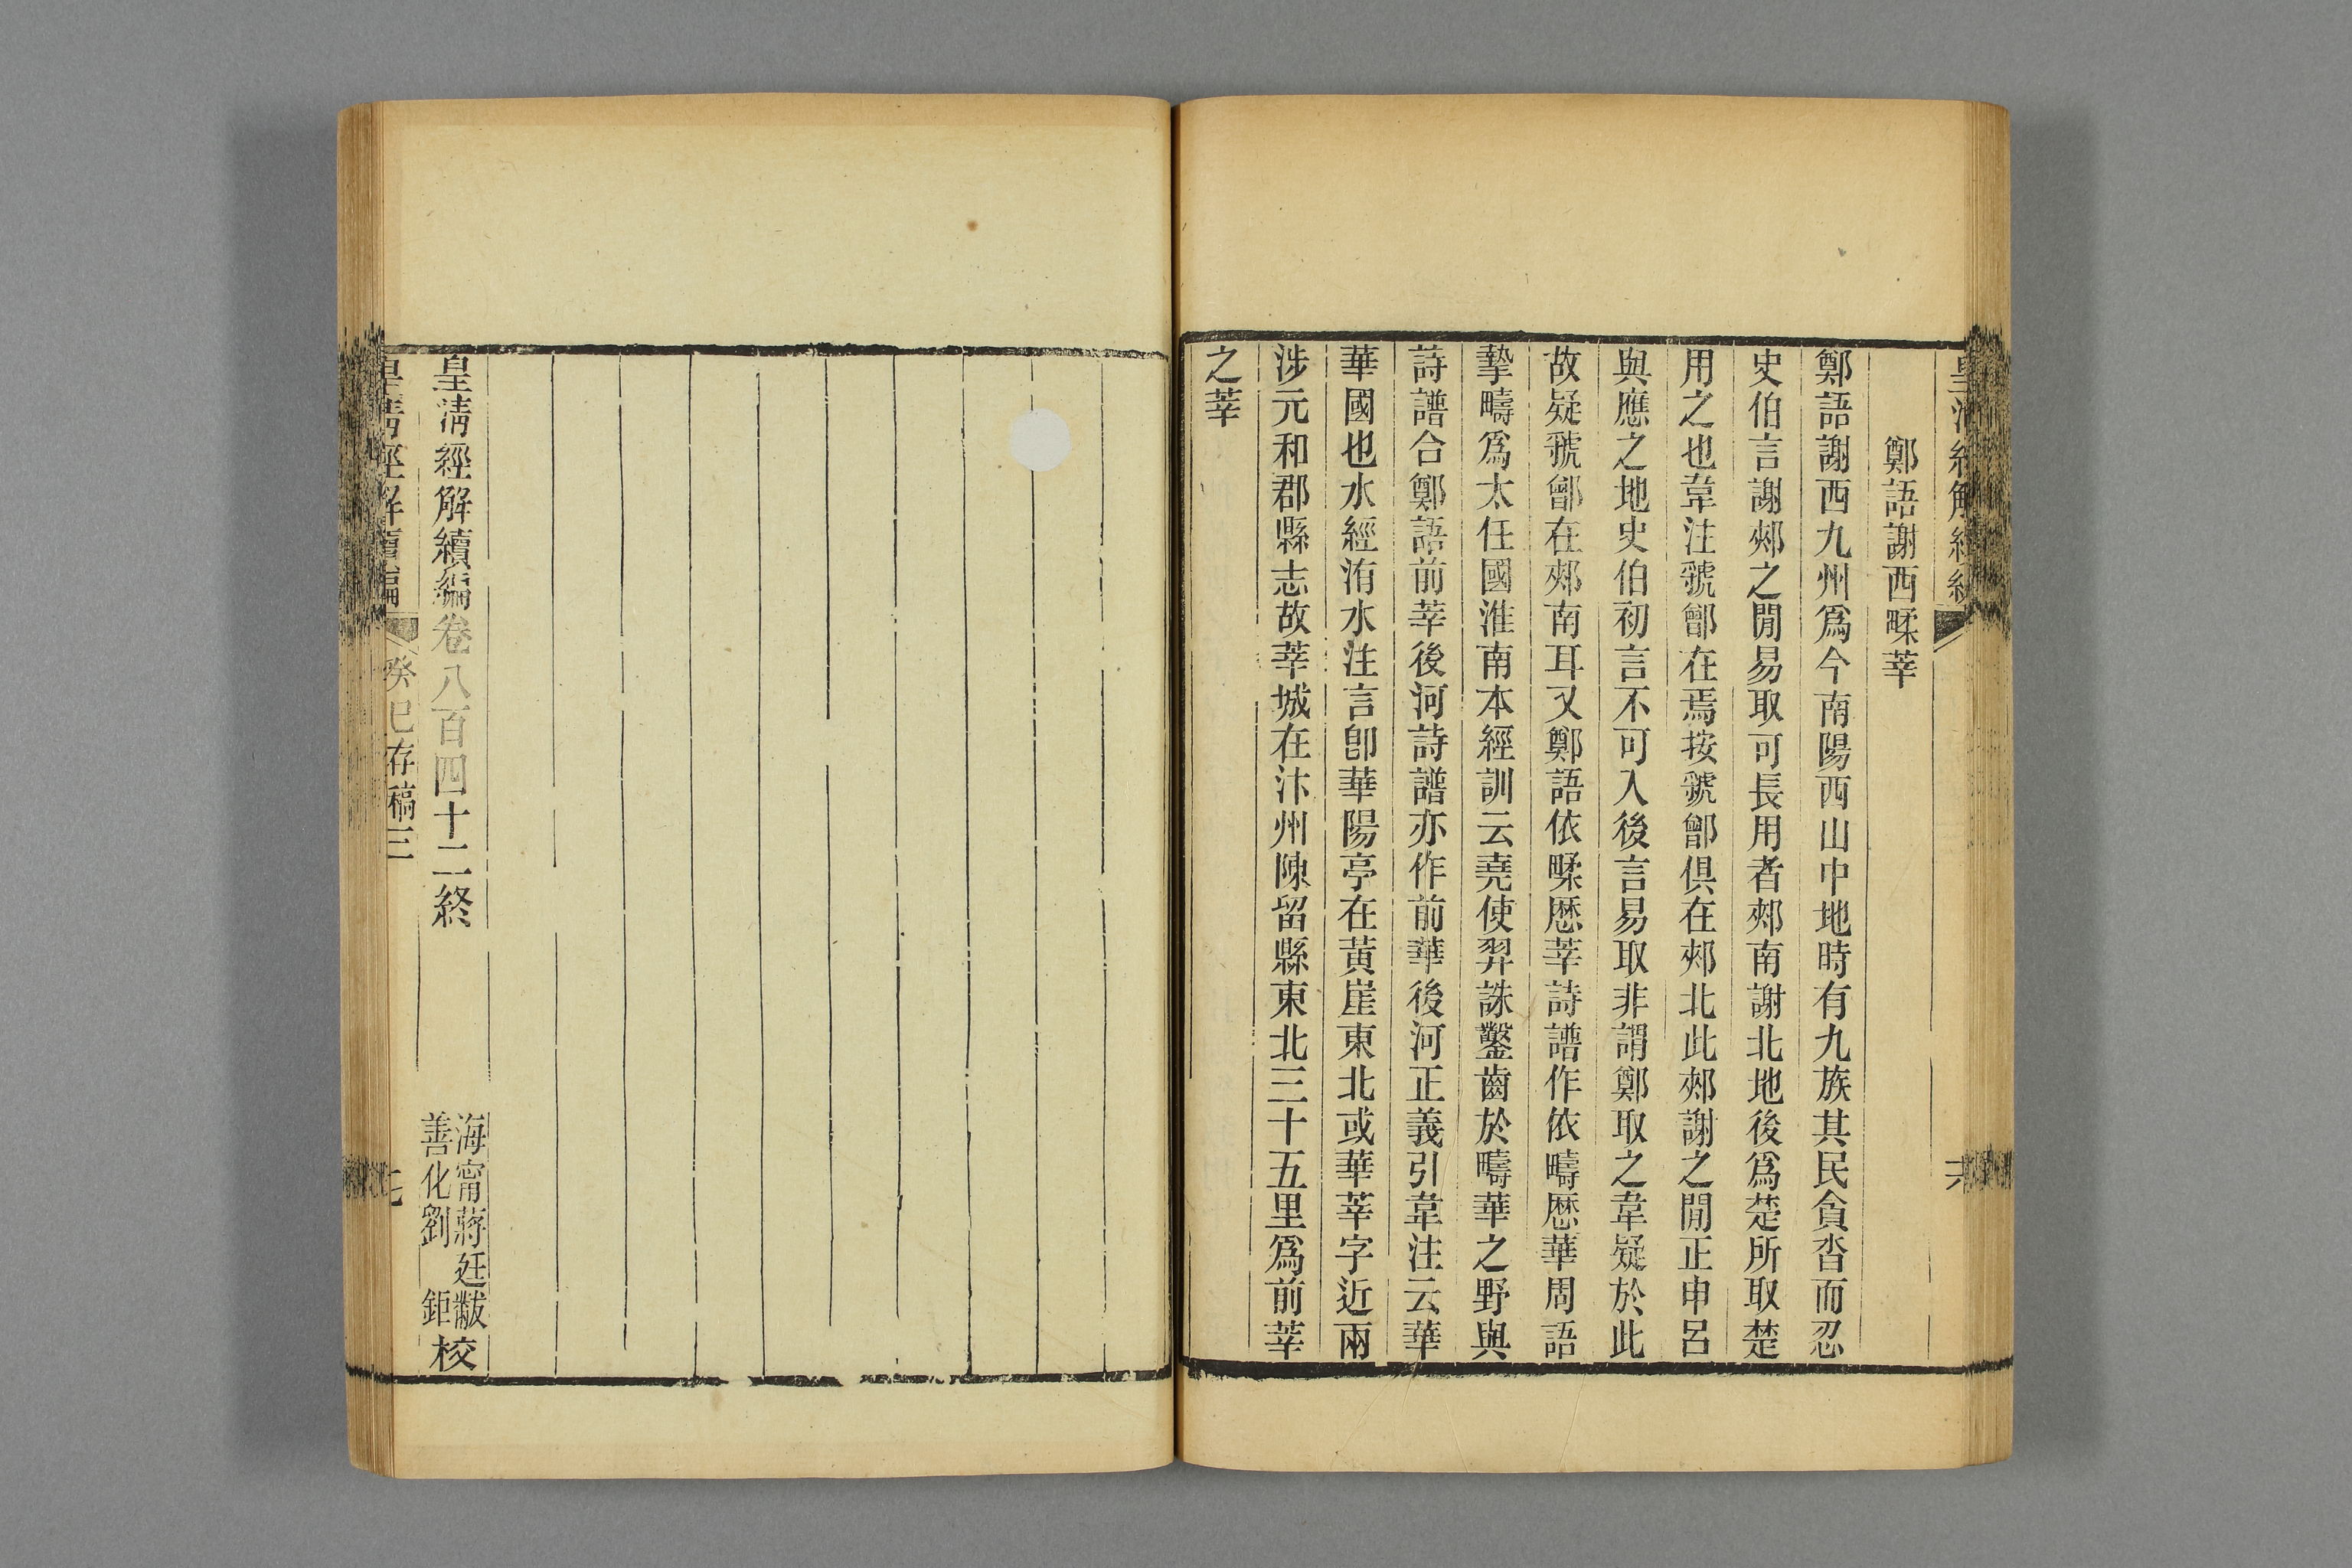 鄭語謝西㽥莘
鄭語謝西九州爲今南陽西山中地時有九族其民貪沓而忍
史伯言謝郟之閒易取可長用者郟南謝北地後爲楚所取楚
用之也韋注虢鄶在焉按虢鄶俱在郟北此郟謝之閒正申呂
與應之地史伯初言不可入後言易取非謂鄭取之韋疑於此
故疑虢鄶在郟南耳又鄭語依㽥厯莘詩譜作依疇厯華周語
摯疇爲太任國淮南本經訓云堯使羿誅鑿齒於疇華之野與
詩譜合鄭語前莘後河詩譜亦作前華後河正義引韋注云華
華國也水經洧水注言卽華陽亭在黃崖東北或華莘字近兩
涉元和郡縣志故莘城在汴州陳留縣東北三十五里爲前莘
之莘
皇清經解續編卷八百四十二終
海甯蔣廷黻
善化劉 鉅校
皇清經解續編 癸巳存稿三